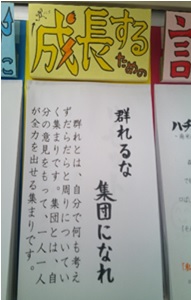 成長する
ための
ハチ
群れるな
集団になれ
群れとは、自分で何も考え
ずだらだらと周りについてい
く集まりです。集団とは、自
分の意見をもって、一人一人
が全力を出せる集まりです。